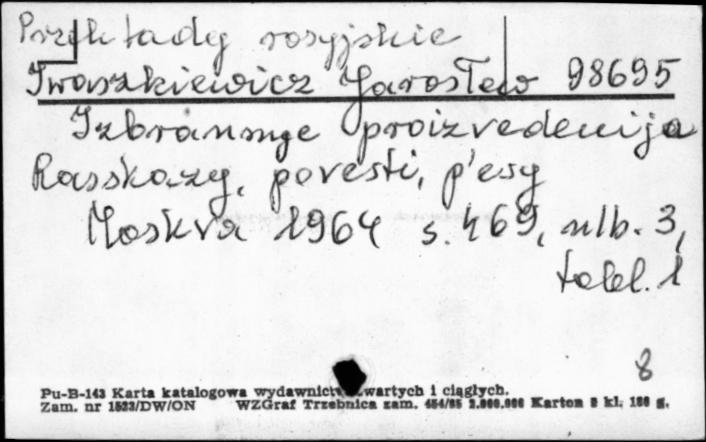 Przekłady rosyjskie
Iwaszkiewicz Jarosław 98695
Izbrannye proizvedenija
Rasskazy, povesti, p'esy
Moskva 1964 s. 469, nlb. 3,
tabl. 1
8
Pu-B-143 Karta katalogowa wydawnictw zwartych i ciągłych.
Zam. nr 1523/DW/ON WZGraf Trzebnica zam. 454/85 2.000.000 Karton 2 kl. 180 g.